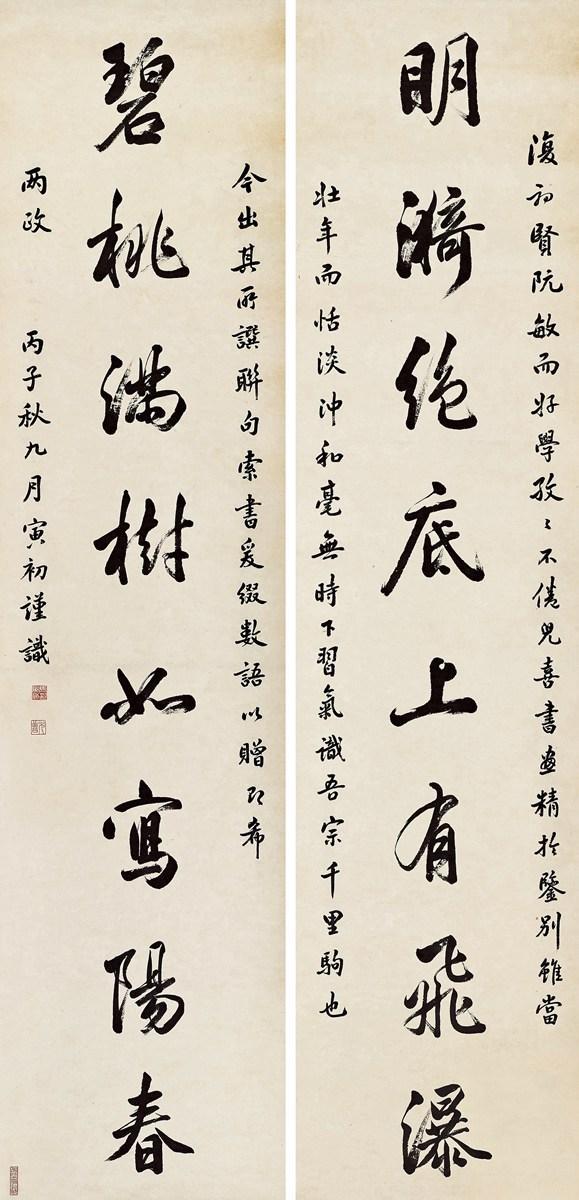 復初賢阮敏而好學孜々不倦兒喜書畫精於鑒別雖當
明漪絕底上有飛瀑
壯年而恬淡沖和毫無時下習氣識吾宗千里駒也
今出其所譔聯句索書爰綴數語以贈即希
碧桃滿樹如寫陽春
两政 丙子秋九月寅初謹識